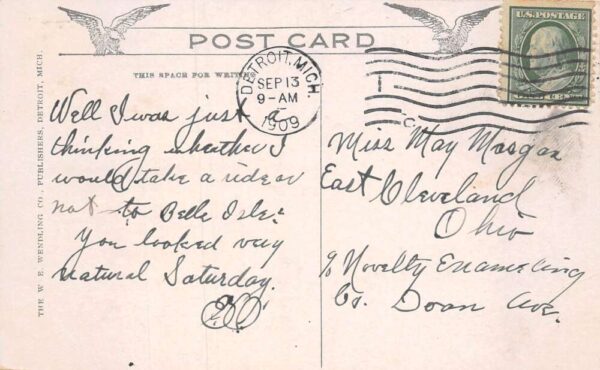 POST CARD
THIS SPACE FOR WRITING
U.S. POSTAGE
DETROIT, MICH.
SEP 13
9-AM
1909
Well I was just a
thinking wheather I
would take a ride or
not to Belle Isle.
You looked very
natural Saturday.
Miss May Morgan
East Cleveland
Ohio
% Novelty Enameling
Co. Doan Ave.
THE W. E. WENDLING CO., PUBLISHERS, DETROIT, MICH.